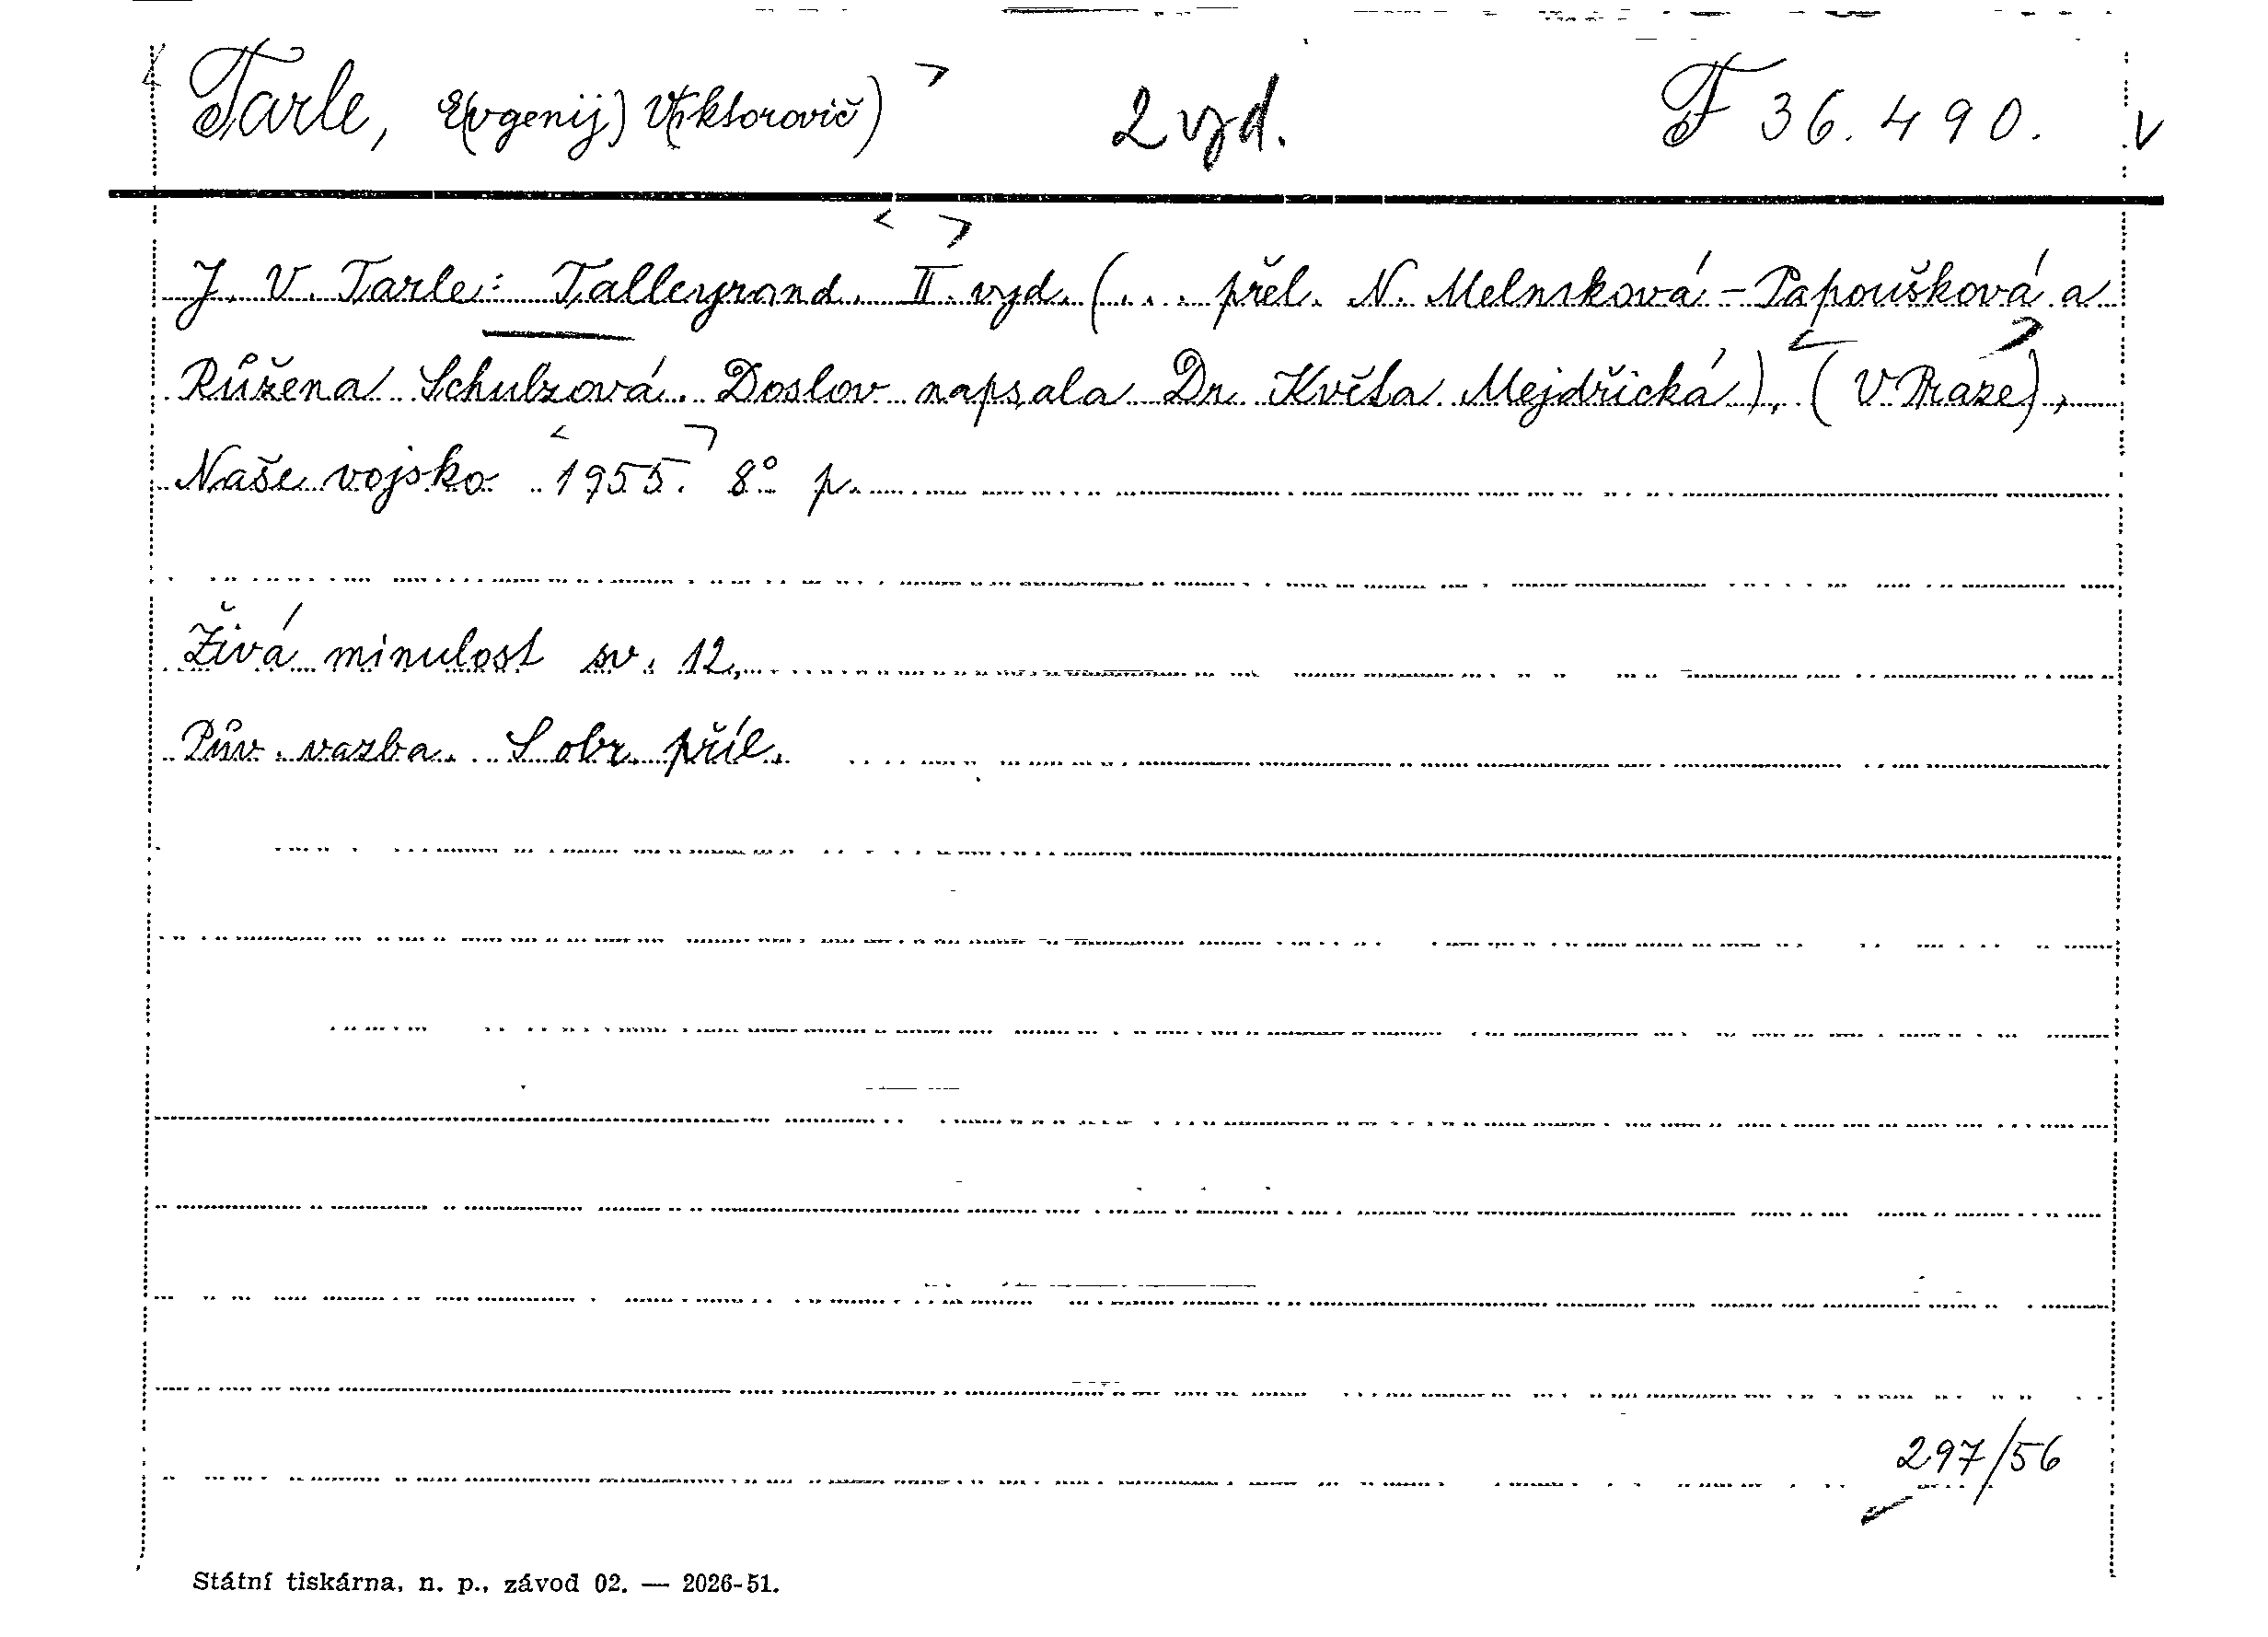 Tarle, E(vgenij) V(iktorovič) 2 vyd. F 36.490.
J. V. Tarle: Talleyrand. II. vyd. (... přel. N. Melniková-Papoušková a
Růžena Schulzová. Doslov napsala Dr. Květa Mejdřická), (V Praze),
Naše vojsko 1955. 8° p.
Živá minulost sv. 12.
Pův. vazba. S obr. příl.
297/56
Státní tiskárna, n. p., závod 02. — 2026-51.